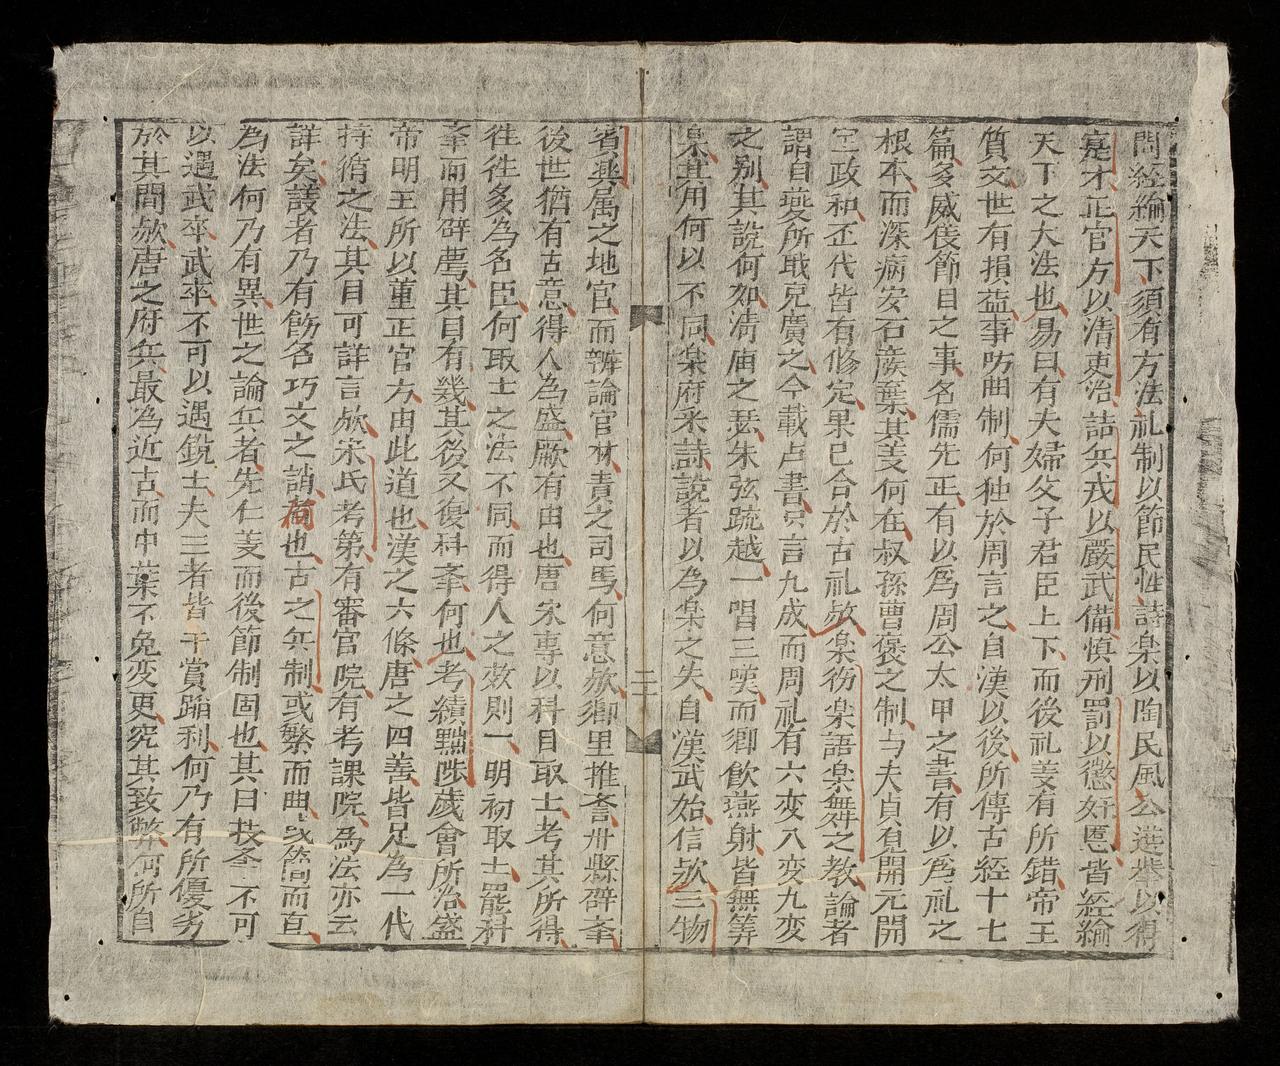 問経綸天下須有方法礼制以節民性詩楽以陶民風公選挙以得
寔才正官方以清吏治詰兵戎以嚴武備慎刑罰以懲奸慝皆経綸
天下之大法也易曰有夫婦父子君臣上下而後礼义有所錯帝王
質文世有損益事昉曲制何独於周言之自漢以後所傳古経十七
篇多威儀節目之事名儒先正有以為周公太甲之書有以為礼之
根本而深病安石廃棄其义何在叔孫曹褒之制与夫貞覌開元開
宝政和五代皆有修定果已合於古礼欤楽衍楽語楽舞之教論者
謂自夔所戢見廣之今載占書只言九成而周礼有六変八変九変
之别其說何如清庙之瑟朱弦䟽越一唱三嘆而卿飲燕射皆無筭
楽其用何以不同楽府采詩說者以為楽之失自漢武始信欤三物
賓興属之地官而辨論官材責之司馬何意欤鄉里推荅州縣辟峯
後世猶有古意得人為盛厥有由也唐宋專以科目取士考其所得
往往多為名臣何取士之法不同而得人之效則一明初取士罷科
峯而用辟薦其目有幾其後又復科峯何也考績黜陟歲會所治盛
帝明王所以董正官方由此道也漢之六條唐之四善皆足為一代
持循之法其目可詳言欤宋氏考第有審官院有考課院為法亦云
詳矣議者乃有飭名巧文之誚而也古之兵制或繁而曲或简而直
為法何乃有異世之論兵者先仁义而後節制固也其曰技击不可
以遇武卒武卒不可以遇銳士夫三者皆干賞蹈利何乃有所優劣
於其間欤唐之府兵最為近古而中葉不免変更究其致弊何所自